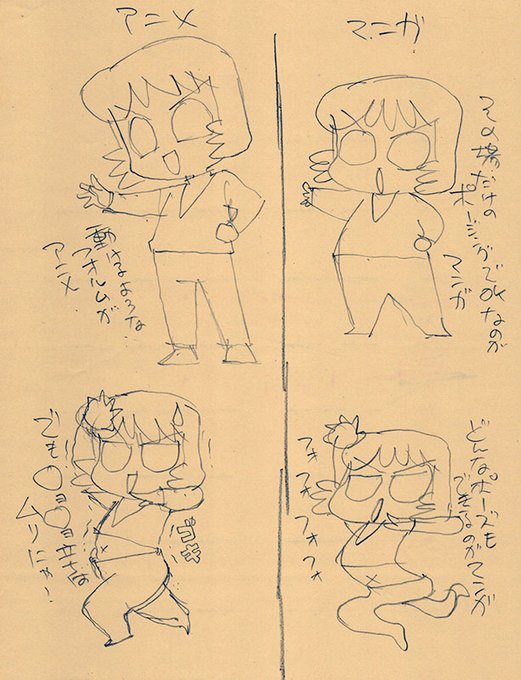 アニメ
マンガ
その場だけの
ポージングでOKなのが
マンガ
動けるような
フォルムが
アニメ
どんなポーズも
できるのがマンガ
フォ
フォ
フォ
フォ
でも〇ョ〇ョ立ちは
ムリにゃ!